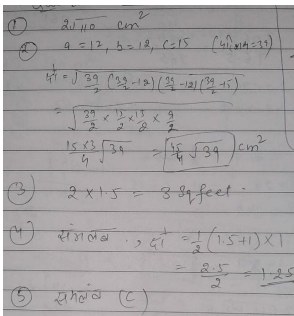 ① 2√110 cm²
② a = 12, b = 12, c = 15 (परिमाप = 39)
= √39/2 (39/2 -12) (39/2 -12) (39/2 -15)
= √39/2 × 15/2 × 15/2 × 9/2
15×3/4 √39 = 45/4 √39 cm²
③ 2 × 1.5 = 3 Sq feet.
④ = 1/2 (1.5+1) × 1
= 2.5/2 = 1.25
⑤ समलंब (C)